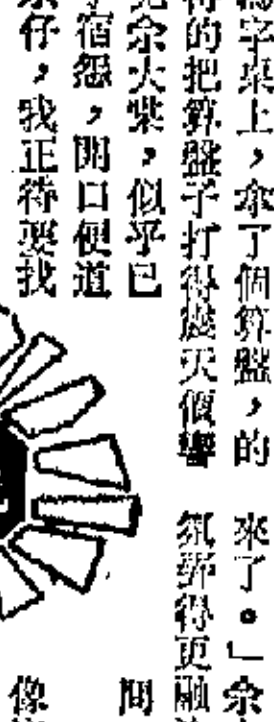 字桌上，拿了個算盤，的
的把算盤子打得震天價響
余大業，似乎已
宿怨，開口便道
仔，我正待要找
來了。」余
氛弄得更融
間
像